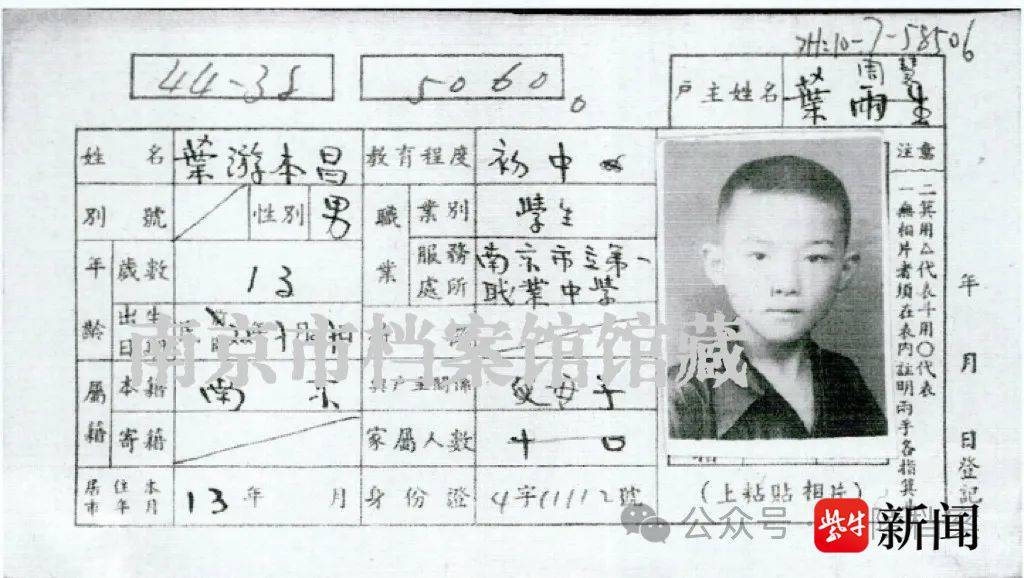 7-58506
44-38
5060。
戶主姓名
葉雨生
姓名 葉游本昌 教育程度 初中
別號 性別 男 職業 業別 學生
年齡 歲數 13 服務處所 南京市立第一職業中學
出生日期
屬籍 本籍 南京 與戶主關係
寄籍 家屬人數 十口
居住本市年月 13年 月 身份證 4字11112號
(上粘貼相片)
注意
一無相片者須在表內註明兩手各指箕
二箕用△代表斗用〇代表
年 月 日登記
南京市档案馆馆藏
公众号
紫牛新闻